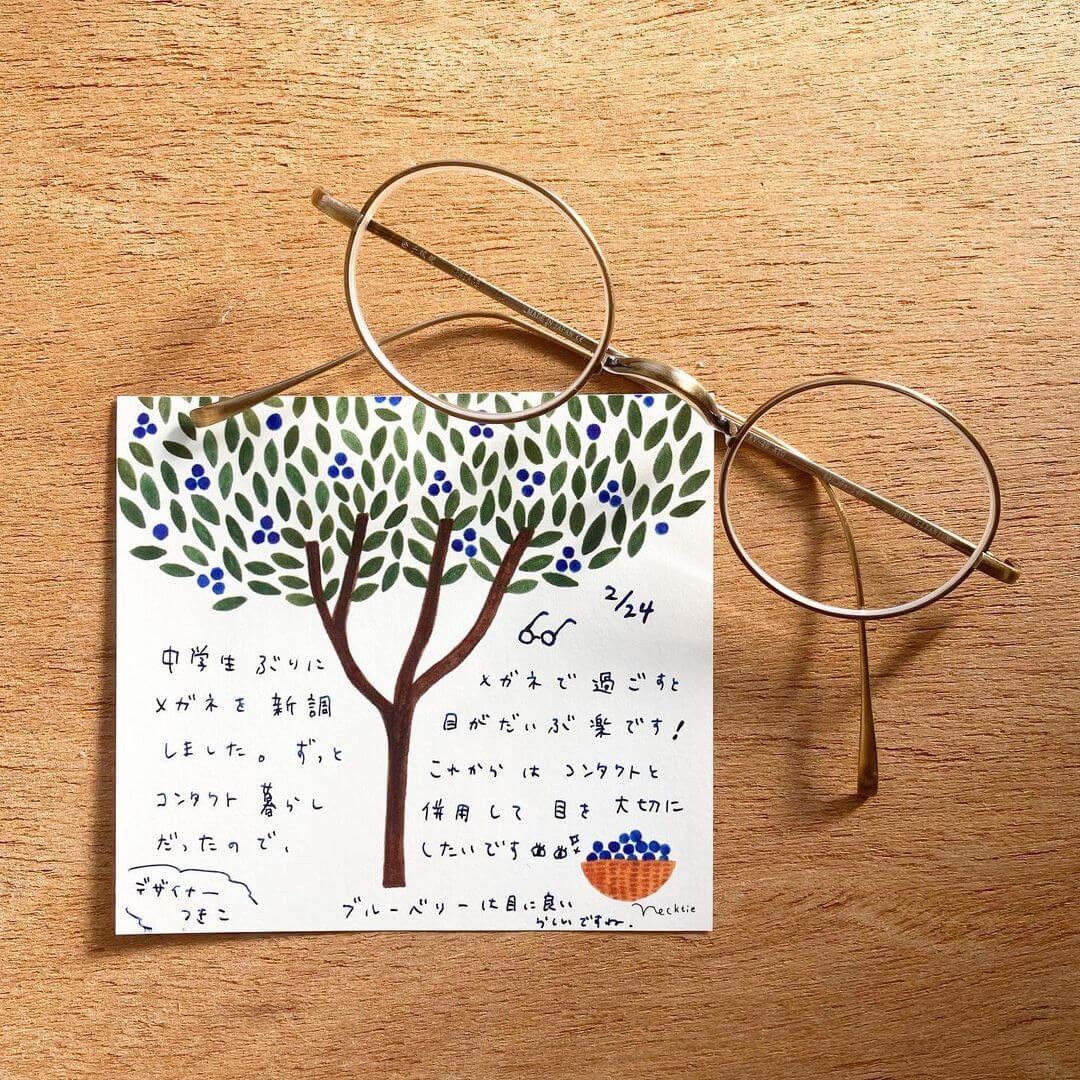 MADE IN JAPAN
2/24
中学生ぶりに
メガネを新調
しました。ずっと
コンタクト暮らし
だったので、
メガネで過ごすと
目がだいぶ楽です!
これからはコンタクトと
併用して目を大切に
したいです
デザイナー
つきこ
ブルーベリーは目に良い
らしいですね.
necktie